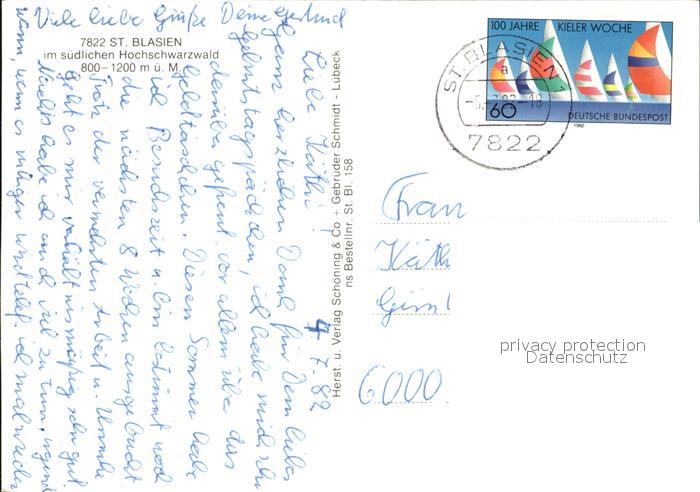 Viele liebe Grüße Deine Gertrud
7822 ST. BLASIEN
im südlichen Hochschwarzwald
800–1200 m ü. M.
4.7.82
Liebe Käthi!
Ganz herzlichen Dank für Dein liebes
Geburtstagspäckchen, ich habe mich sehr
darüber gefreut, vor allem über das
Geldtäschchen. Diesen Sommer habe
ich Besuchszeit u. bin bestimmt noch
die nächsten 8 Wochen ausgebucht
Trotz der vermehrten Arbeit u. Unruhe
geht es mir verhältnismäßig sehr gut
Nachts habe ich auch viel zu tun, irgend
wann, wenn es ruhiger wird telef. ich mal wieder
Herst. u. Verlag Schöning & Co + Gebrüder Schmidt - Lübeck
ns Bestellnr. St. Bl. 158
100 JAHRE KIELER WOCHE
60
DEUTSCHE BUNDESPOST
1982
ST. BLASIEN 1
a
82-18
7822
Frau
Käthi
6000
privacy protection
Datenschutz